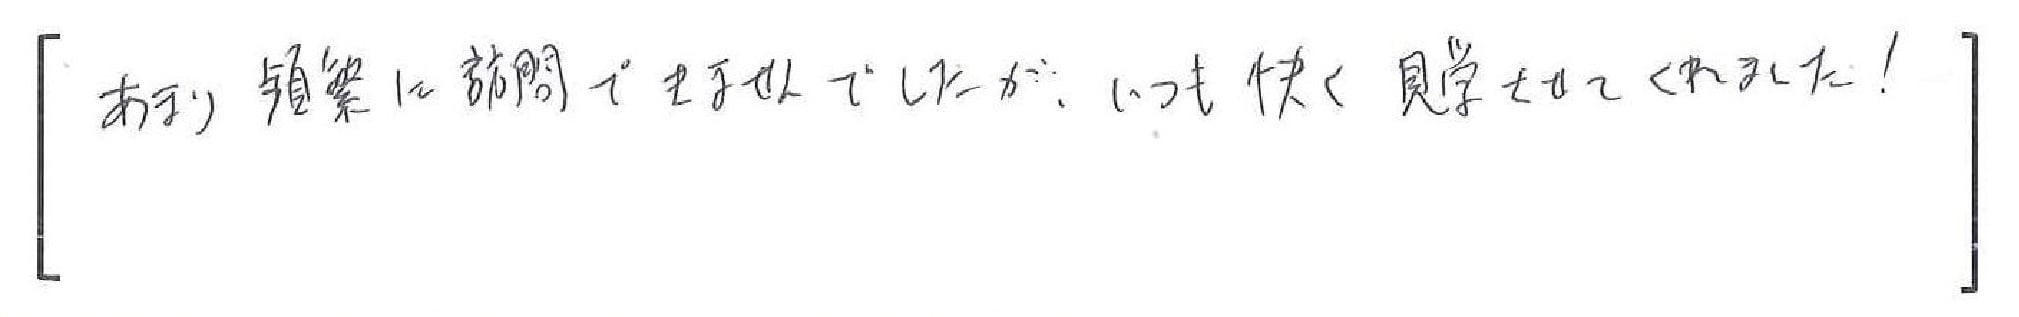 あまり頻繁に訪問できませんでしたが、いつも快く見学させてくれました！